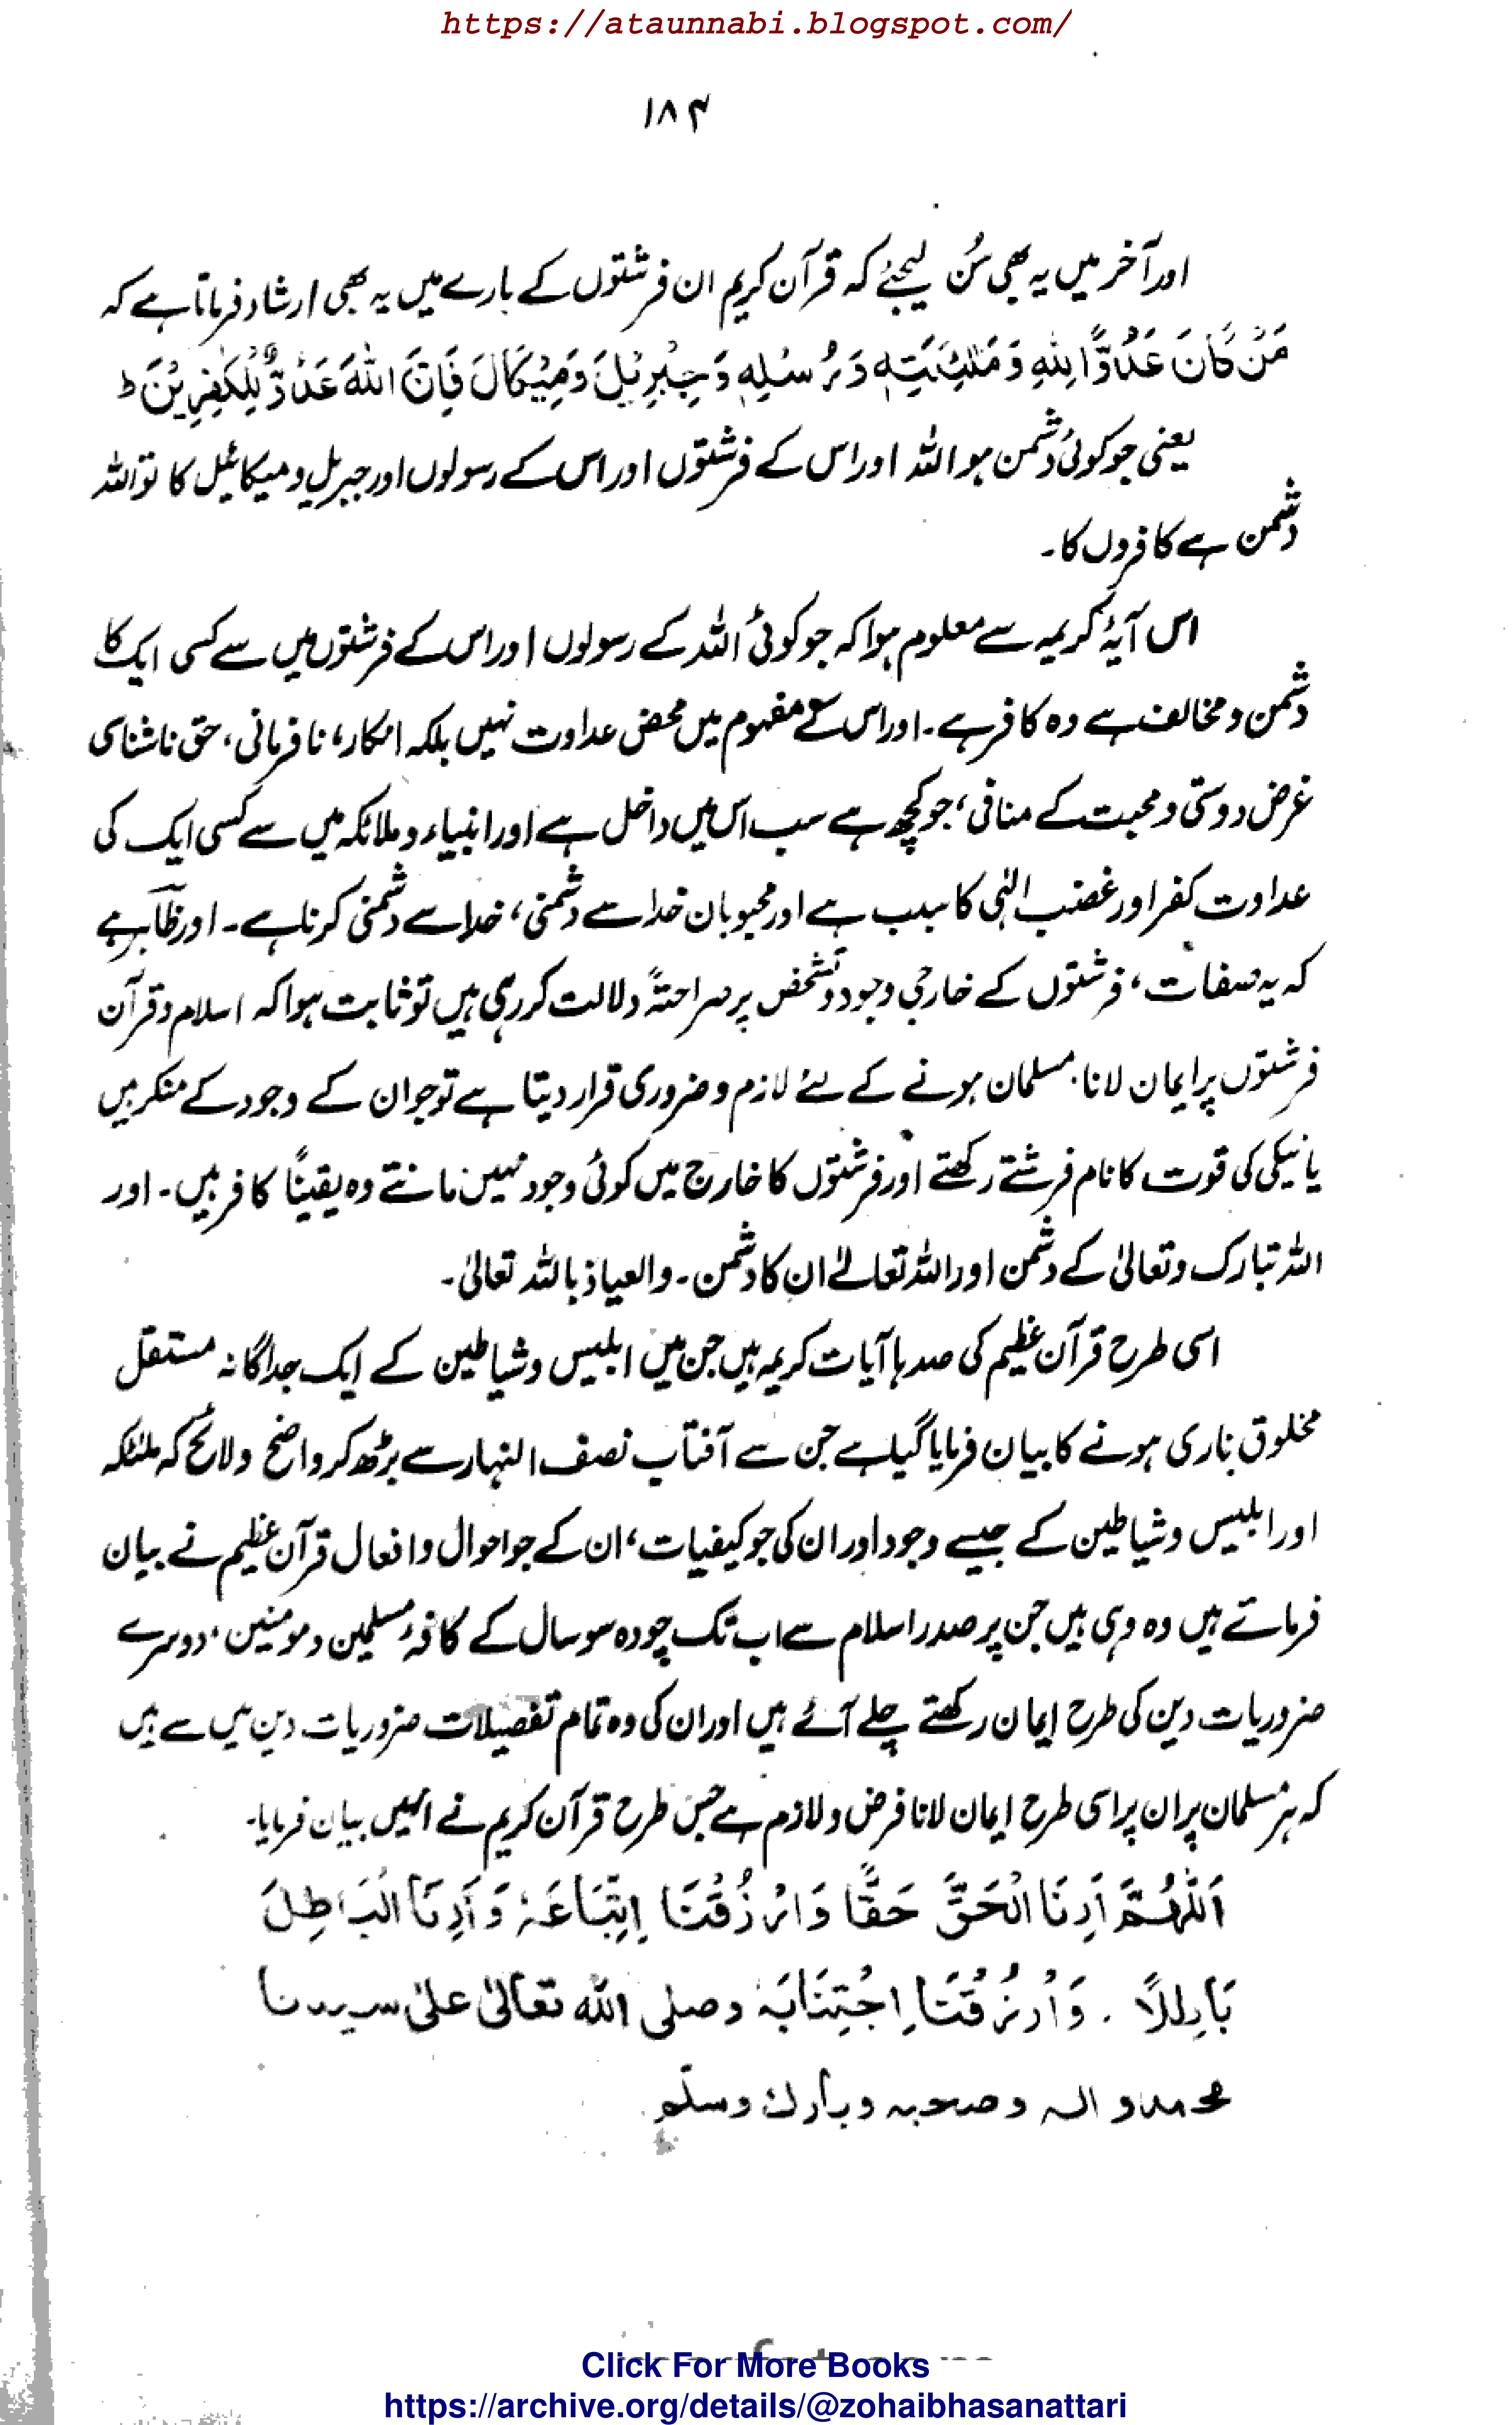 https://ataunnabi.blogspot.com/
۱۸۴
اور آخر میں یہ بھی سُن لیجئے کہ قرآن کریم ان فرشتوں کے بارے میں یہ بھی ارشاد فرماتا ہے کہ
مَنْ كَانَ عَدُوًّا لِلّٰهِ وَمَلٰٓئِكَتِهٖ وَرُسُلِهٖ وَجِبْرِيْلَ وَمِيْكَالَ فَاِنَّ اللّٰهَ عَدُوٌّ لِّلْكٰفِرِيْنَ ط
یعنی جو کوئی دشمن ہو اللہ اور اس کے فرشتوں اور اس کے رسولوں اور جبریل و میکائیل کا تو اللہ
دشمن ہے کافروں کا۔
اس آیۂ کریمہ سے معلوم ہوا کہ جو کوئی اللہ کے رسولوں اور اس کے فرشتوں میں سے کسی ایک کا
دشمن و مخالف ہے وہ کافر ہے۔ اور اس کے مفہوم میں محض عداوت نہیں بلکہ انکار، نافرمانی، حق ناشناسی
غرض دوستی و محبت کے منافی، جو کچھ ہے سب اس میں داخل ہے اور انبیاء و ملائکہ میں سے کسی ایک کی
عداوت کفر اور غضب الہٰی کا سبب ہے اور محبوبان خدا سے دشمنی، خدا سے دشمنی کرنا ہے۔ اور ظاہر ہے
کہ یہ صفات، فرشتوں کے خارجی وجود و تشخص پر صراحتہً دلالت کر رہی ہیں تو ثابت ہوا کہ اسلام و قرآن
فرشتوں پر ایمان لانا، مسلمان ہونے کے لئے لازم و ضروری قرار دیتا ہے تو جو ان کے وجود کے منکر ہیں
یا نیکی کی قوت کا نام فرشتے رکھتے اور فرشتوں کا خارج میں کوئی وجود نہیں مانتے وہ یقیناً کافر ہیں۔ اور
اللہ تبارک و تعالیٰ کے دشمن اور اللہ تعالےٰ ان کا دشمن۔ والعیاذ باللہ تعالیٰ۔
اسی طرح قرآن عظیم کی صدہا آیات کریمہ ہیں جن میں ابلیس و شیاطین کے ایک جداگانہ مستقل
مخلوق ناری ہونے کا بیان فرمایا گیا ہے جن سے آفتاب نصف النہار سے بڑھ کر واضح و لائح کہ ملئکہ
اور ابلیس و شیاطین کے جیسے وجود اور ان کی جو کیفیات، ان کے جو احوال و افعال قرآن عظیم نے بیان
فرماتے ہیں وہ وہی ہیں جن پر صدر اسلام سے اب تک چودہ سو سال کے کافۂ مسلمین و مومنین، دوسرے
ضروریات دین کی طرح ایمان رکھتے چلے آئے ہیں اور ان کی وہ تمام تفصیلات ضروریات دین میں سے ہیں
کہ ہر مسلمان پر ان پر اسی طرح ایمان لانا فرض و لازم ہے جس طرح قرآن کریم نے انہیں بیان فرمایا۔
اَللّٰهُمَّ اَرِنَا الْحَقَّ حَقًّا وَارْزُقْنَا اِتِّبَاعَهٗ وَاَرِنَا الْبَاطِلَ
بَاطِلًا . وَارْزُقْنَا اِجْتِنَابَهٗ وصلى الله تعالىٰ علىٰ سيدنا
محمد واله وصحبه وبارك وسلم
Click For More Books
https://archive.org/details/@zohaibhasanattari